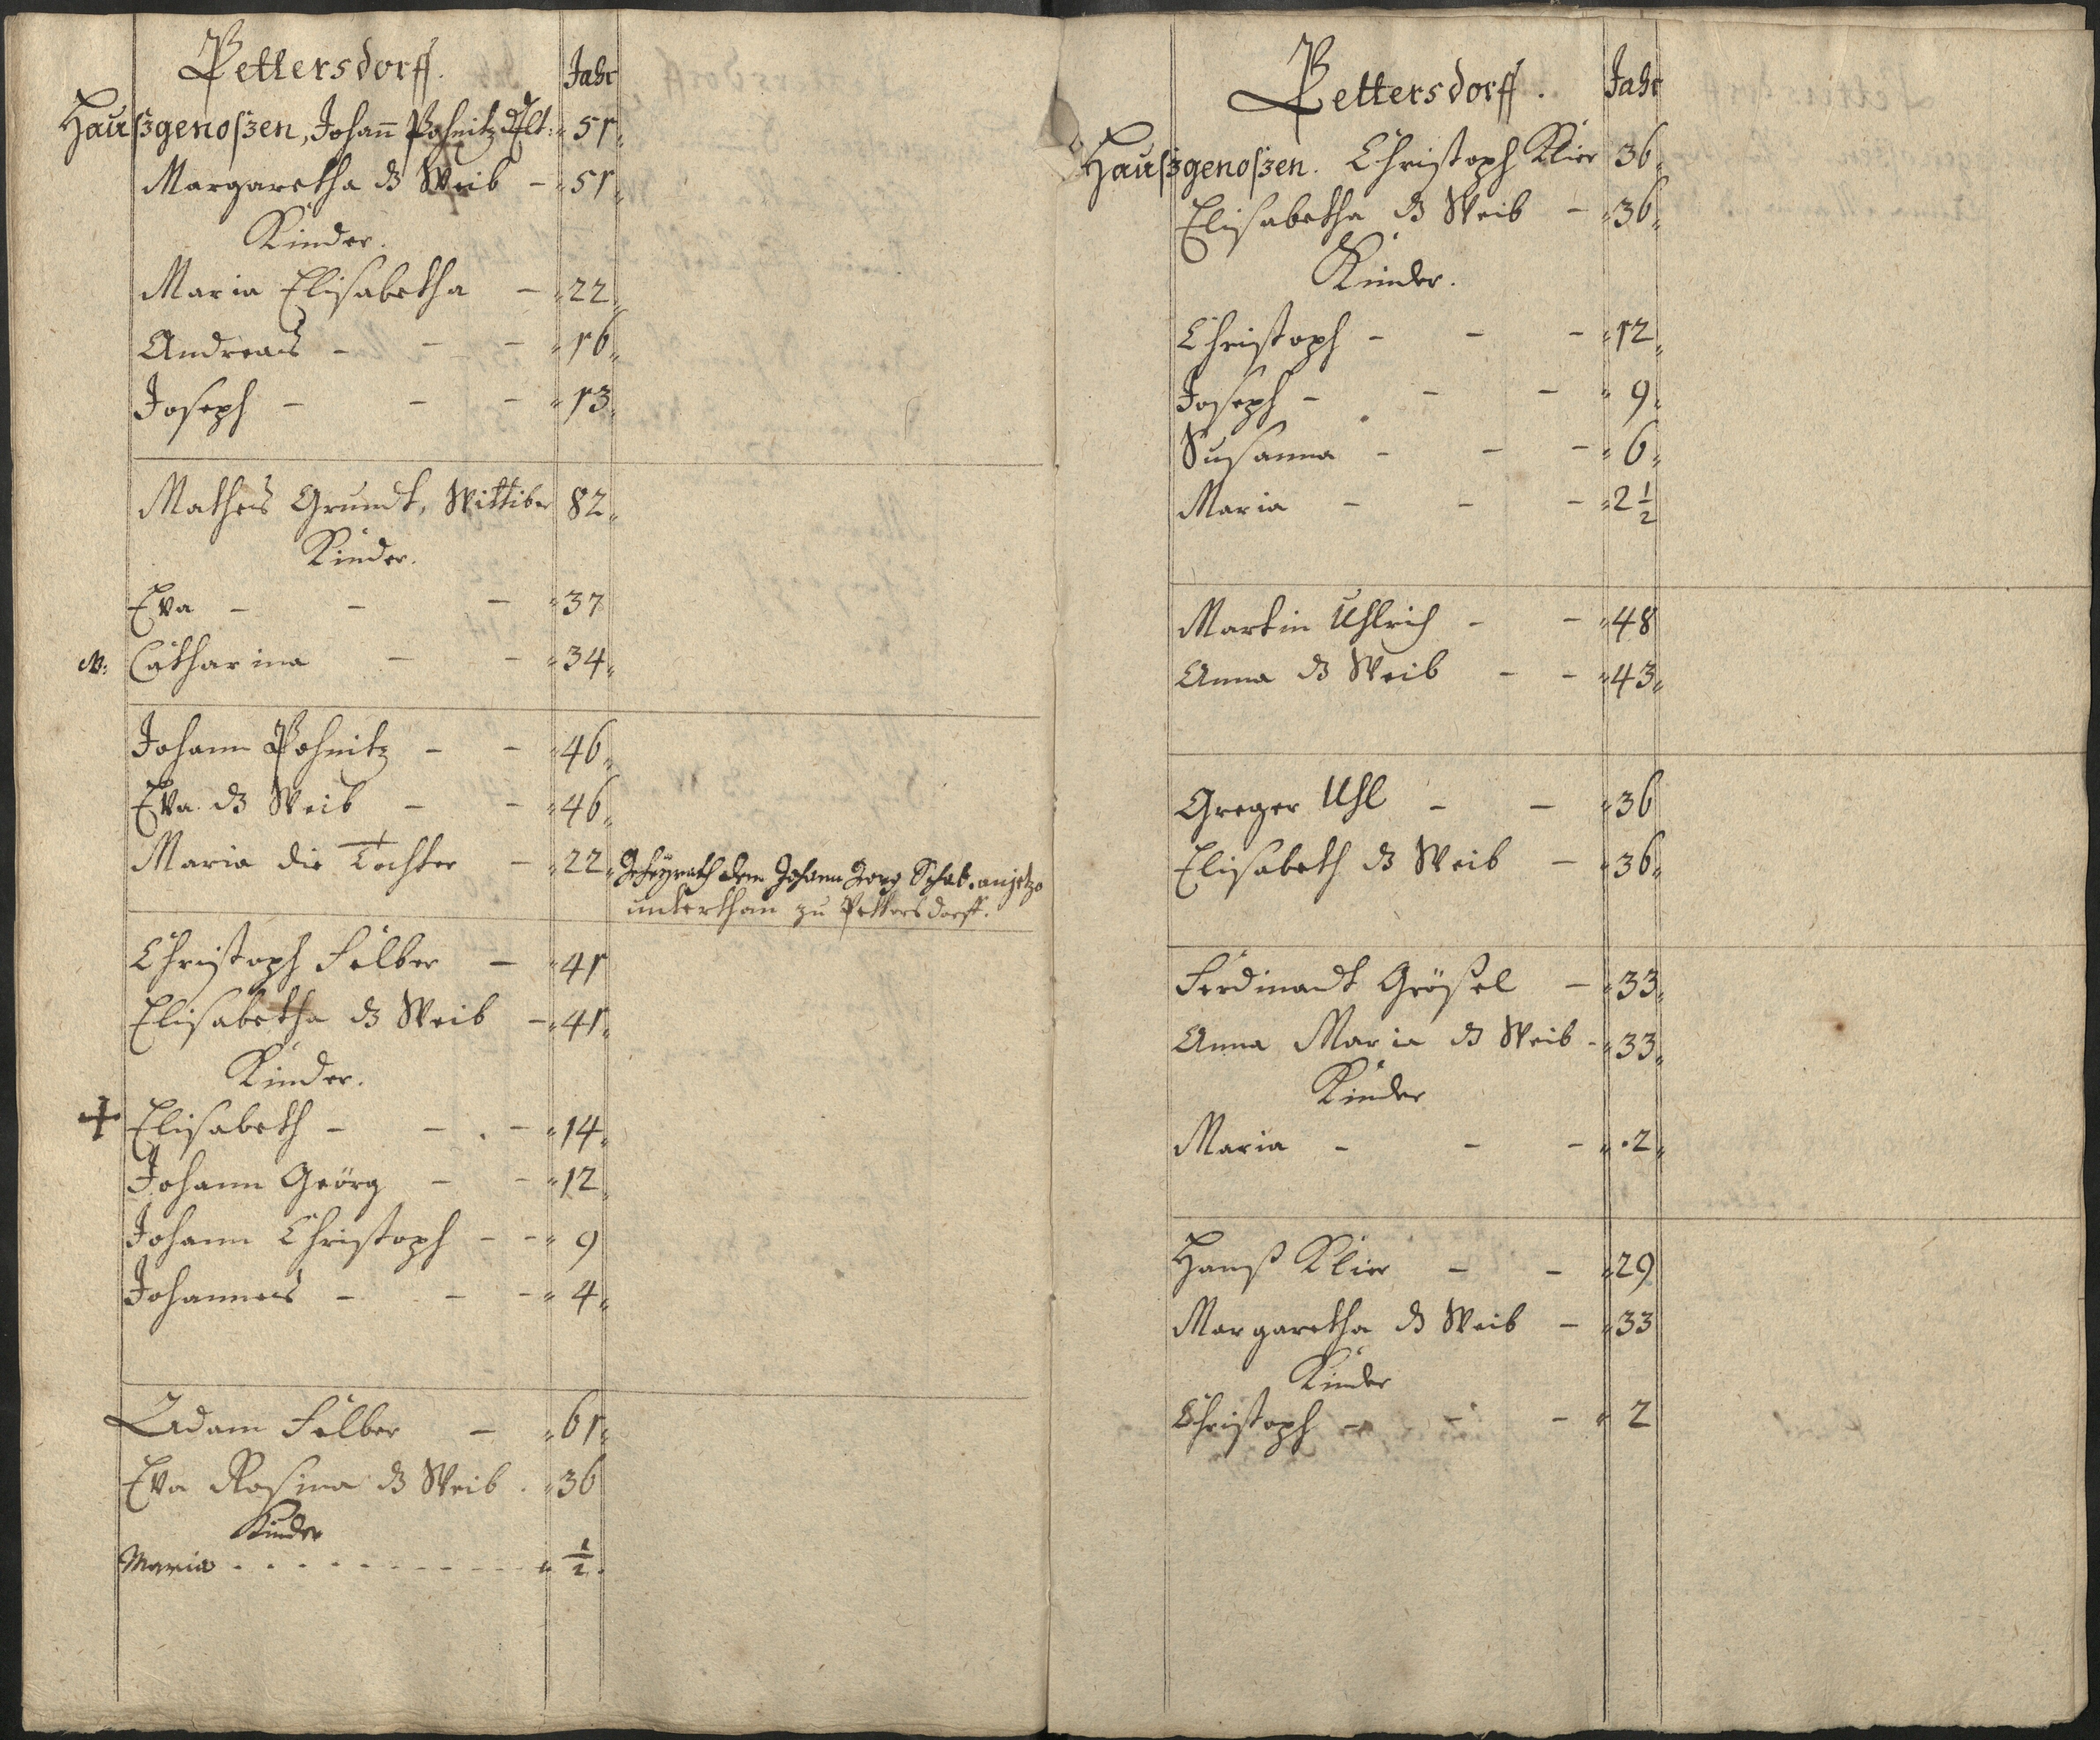 Pettersdorff.
Jahr
Haußgenoßen, Johann Pohnitz d Elt: 51
Margaretha d W Weib - 51
Kinder.
Maria Elisabetha - 22
Andreas - - - 16
Joseph - - - 13
Matheis Grundt, Wittiber 82
Kinder.
Eva - - - 37
N: Catharina - - 34
Johann Pohnitz - - 46
Eva ds Weib - - 46
Maria die Tochter - 22 Geheyrath dem Johann Georg Schab. anjetzo
unterthan zu Pettersdorff.
Christoph Felber - 41
Elisabetha ds Weib - 41
Kinder.
+ Elisabeth - - - 14
Johann Geörg - - 12
Johann Christoph - - 9
Johannes - - - 4
Adam Felber - 61
Eva Rosina ds Weib . 36
Kinder
Maria - - - - - - - - - 1/2.
Pettersdorff.
Jahr
Haußgenoßen. Christoph Klier 36
Elisabetha ds Weib - 36
Kinder.
Christoph - - - 12
Joseph - - - 9
Susanna - - - 6
Maria - - - 2 1/2
Martin Uhlrich - - 48
Anna ds Weib - - 43
Greger Uhl - - 36
Elisabeth ds Weib - 36
Ferdinandt Größel - 33
Anna Maria ds Weib - 33
Kinder
Maria - - - 2
Hanß Klier - - 29
Margaretha ds Weib - 33
Kinder
Christoph - - - 2